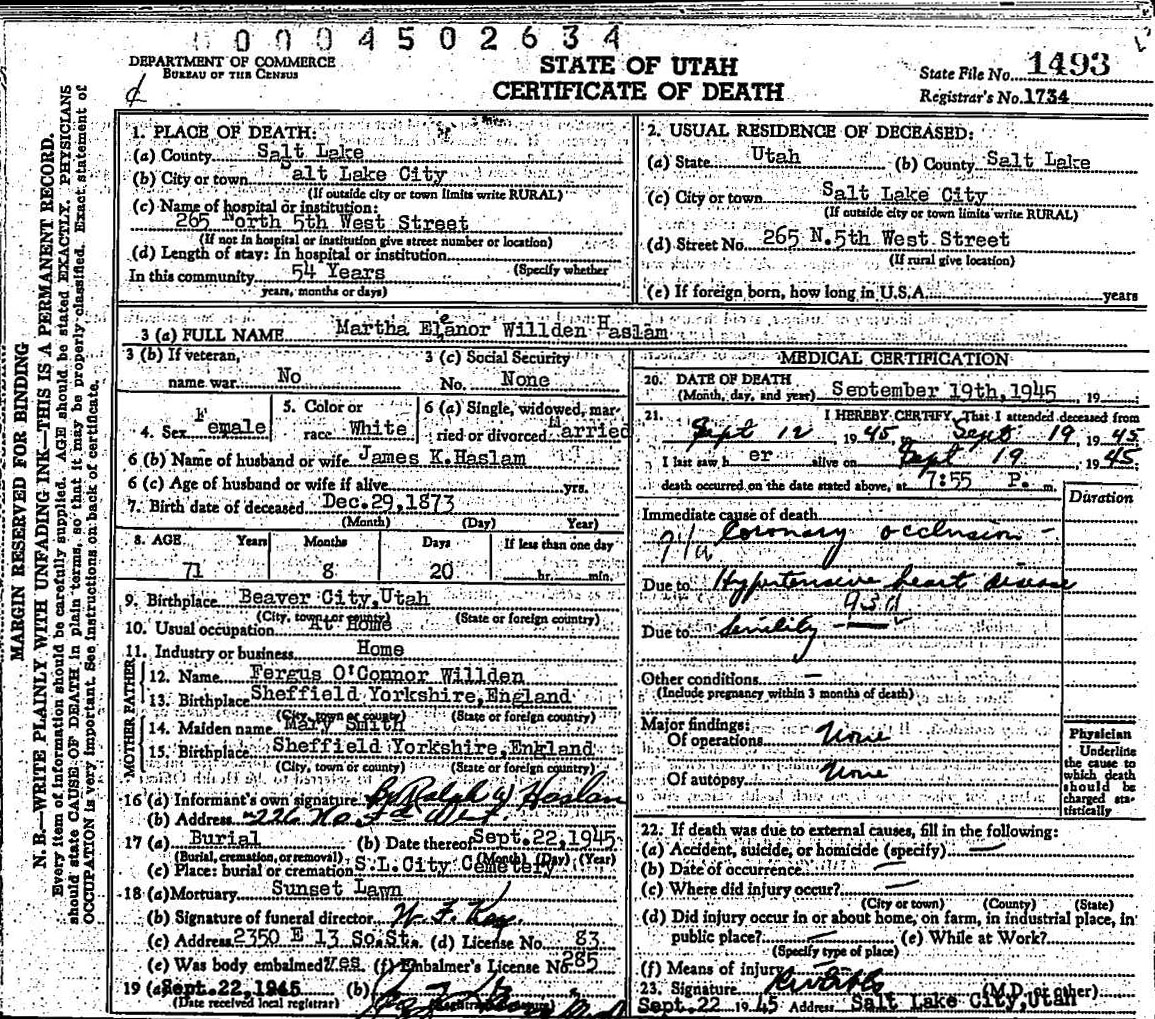 0004502634
DEPARTMENT OF COMMERCE
BUREAU OF THE CENSUS
STATE OF UTAH
CERTIFICATE OF DEATH
State File No. 1493
Registrar's No. 1734
MARGIN RESERVED FOR BINDING
N. B.—WRITE PLAINLY WITH UNFADING INK—THIS IS A PERMANENT RECORD.
Every item of information should be carefully supplied. AGE should be stated EXACTLY. PHYSICIANS
should state CAUSE OF DEATH in plain terms, so that it may be properly classified. Exact statement of
OCCUPATION is very important. See instructions on back of certificate.
1. PLACE OF DEATH:
(a) County Salt Lake
(b) City or town Salt Lake City
(If outside city or town limits write RURAL)
(c) Name of hospital or institution:
265 North 5th West Street
(If not in hospital or institution give street number or location)
(d) Length of stay: In hospital or institution
(Specify whether
In this community 54 Years
years, months or days)
2. USUAL RESIDENCE OF DECEASED:
(a) State Utah (b) County Salt Lake
(c) City or town Salt Lake City
(If outside city or town limits write RURAL)
(d) Street No. 265 N.5th West Street
(If rural give location)
(e) If foreign born, how long in U.S.A. years
3 (a) FULL NAME Martha Eleanor Willden Haslam
3 (b) If veteran, name war No
3 (c) Social Security No. None
4. Sex Female
5. Color or race White
6 (a) Single, widowed, married or divorced Married
6 (b) Name of husband or wife James K.Haslam
6 (c) Age of husband or wife if alive yrs.
7. Birth date of deceased Dec.29,1873
(Month) (Day) Year)
8. AGE Years Months Days If less than one day
71 8 20 hr. min.
9. Birthplace Beaver City,Utah
(City, town or county) (State or foreign country)
10. Usual occupation At Home
11. Industry or business Home
FATHER
12. Name Fergus O'Connor Willden
13. Birthplace Sheffield Yorkshire,England
(City, town or county) (State or foreign country)
MOTHER
14. Maiden name Mary Smith
15. Birthplace Sheffield Yorkshire,England
(City, town or county) (State or foreign country)
16 (a) Informant's own signature By Ralph W Haslam
(b) Address 226 No.
17 (a) Burial (b) Date thereof Sept.22,1945
(Burial, cremation, or removal) (Month) (Day) (Year)
(c) Place: burial or cremation S.L.City Cemetery
18 (a) Mortuary Sunset Lawn
(b) Signature of funeral director
(c) Address 2350 E 13 So.St. (d) License No. 83
(e) Was body embalmed? Yes (f) Embalmer's License No. 285
19 (a) Sept.22,1945 (b)
(Date received local registrar) (Registrar's signature)
MEDICAL CERTIFICATION
20. DATE OF DEATH
(Month, day, and year) September 19th,1945 19
21. I HEREBY CERTIFY, That I attended deceased from
Sept 12 1945, to Sept 19, 1945
I last saw her alive on Sept 19, 1945
death occurred on the date stated above, at 7:55 P. m.
Duration
Immediate cause of death
Coronary occlusion
Due to Hypertensive heart disease
Due to Senility
Other conditions —
(Include pregnancy within 3 months of death)
Major findings:
Of operations None
Of autopsy None
Physician
Underline
the cause to
which death
should be
charged sta-
tistically
22. If death was due to external causes, fill in the following:
(a) Accident, suicide, or homicide (specify) —
(b) Date of occurrence —
(c) Where did injury occur? —
(City or town) (County) (State)
(d) Did injury occur in or about home, on farm, in industrial place, in
public place? — (e) While at Work?
(Specify type of place)
(f) Means of injury —
23. Signature (M.D. or other)
Sept.22 1945 Address Salt Lake City,Utah